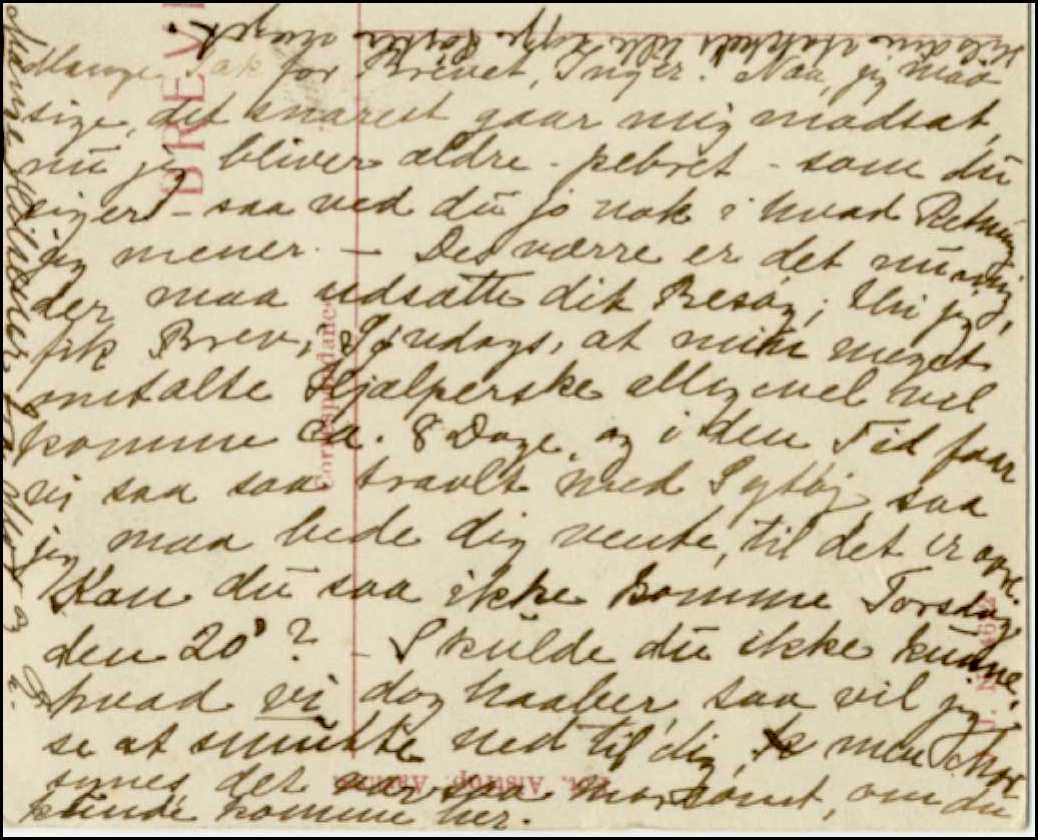 Mange Tak for Brevet, Inger. Naa, jeg maa
sige, det snarest gaar mig modsat,
nu jeg bliver ældre - pebret - som du
siger - saa ved du jo nok i hvad Retning
jeg mener. - Desværre er det nu mig,
der maa udsætte dit Besøg; thi jeg
fik Brev, i Søndags, at min meget
omtalte Hjælperske alligevel vil
komme ca. 8 Dage, og i den Tid faar
vi saa saa travlt med Sytøj, saa
jeg maa bede dig vente, til det er ovre.
Kan du saa ikke komme Torsdag
den 20'? - Skulde du ikke kunne,
hvad vi dog haaber, saa vil jeg
se at smutte ned til dig, men Thora
synes det var saa morsomt, om du
kunde komme her.
Mange Hilsner fra
BREV
Correspondance
Alstrup,